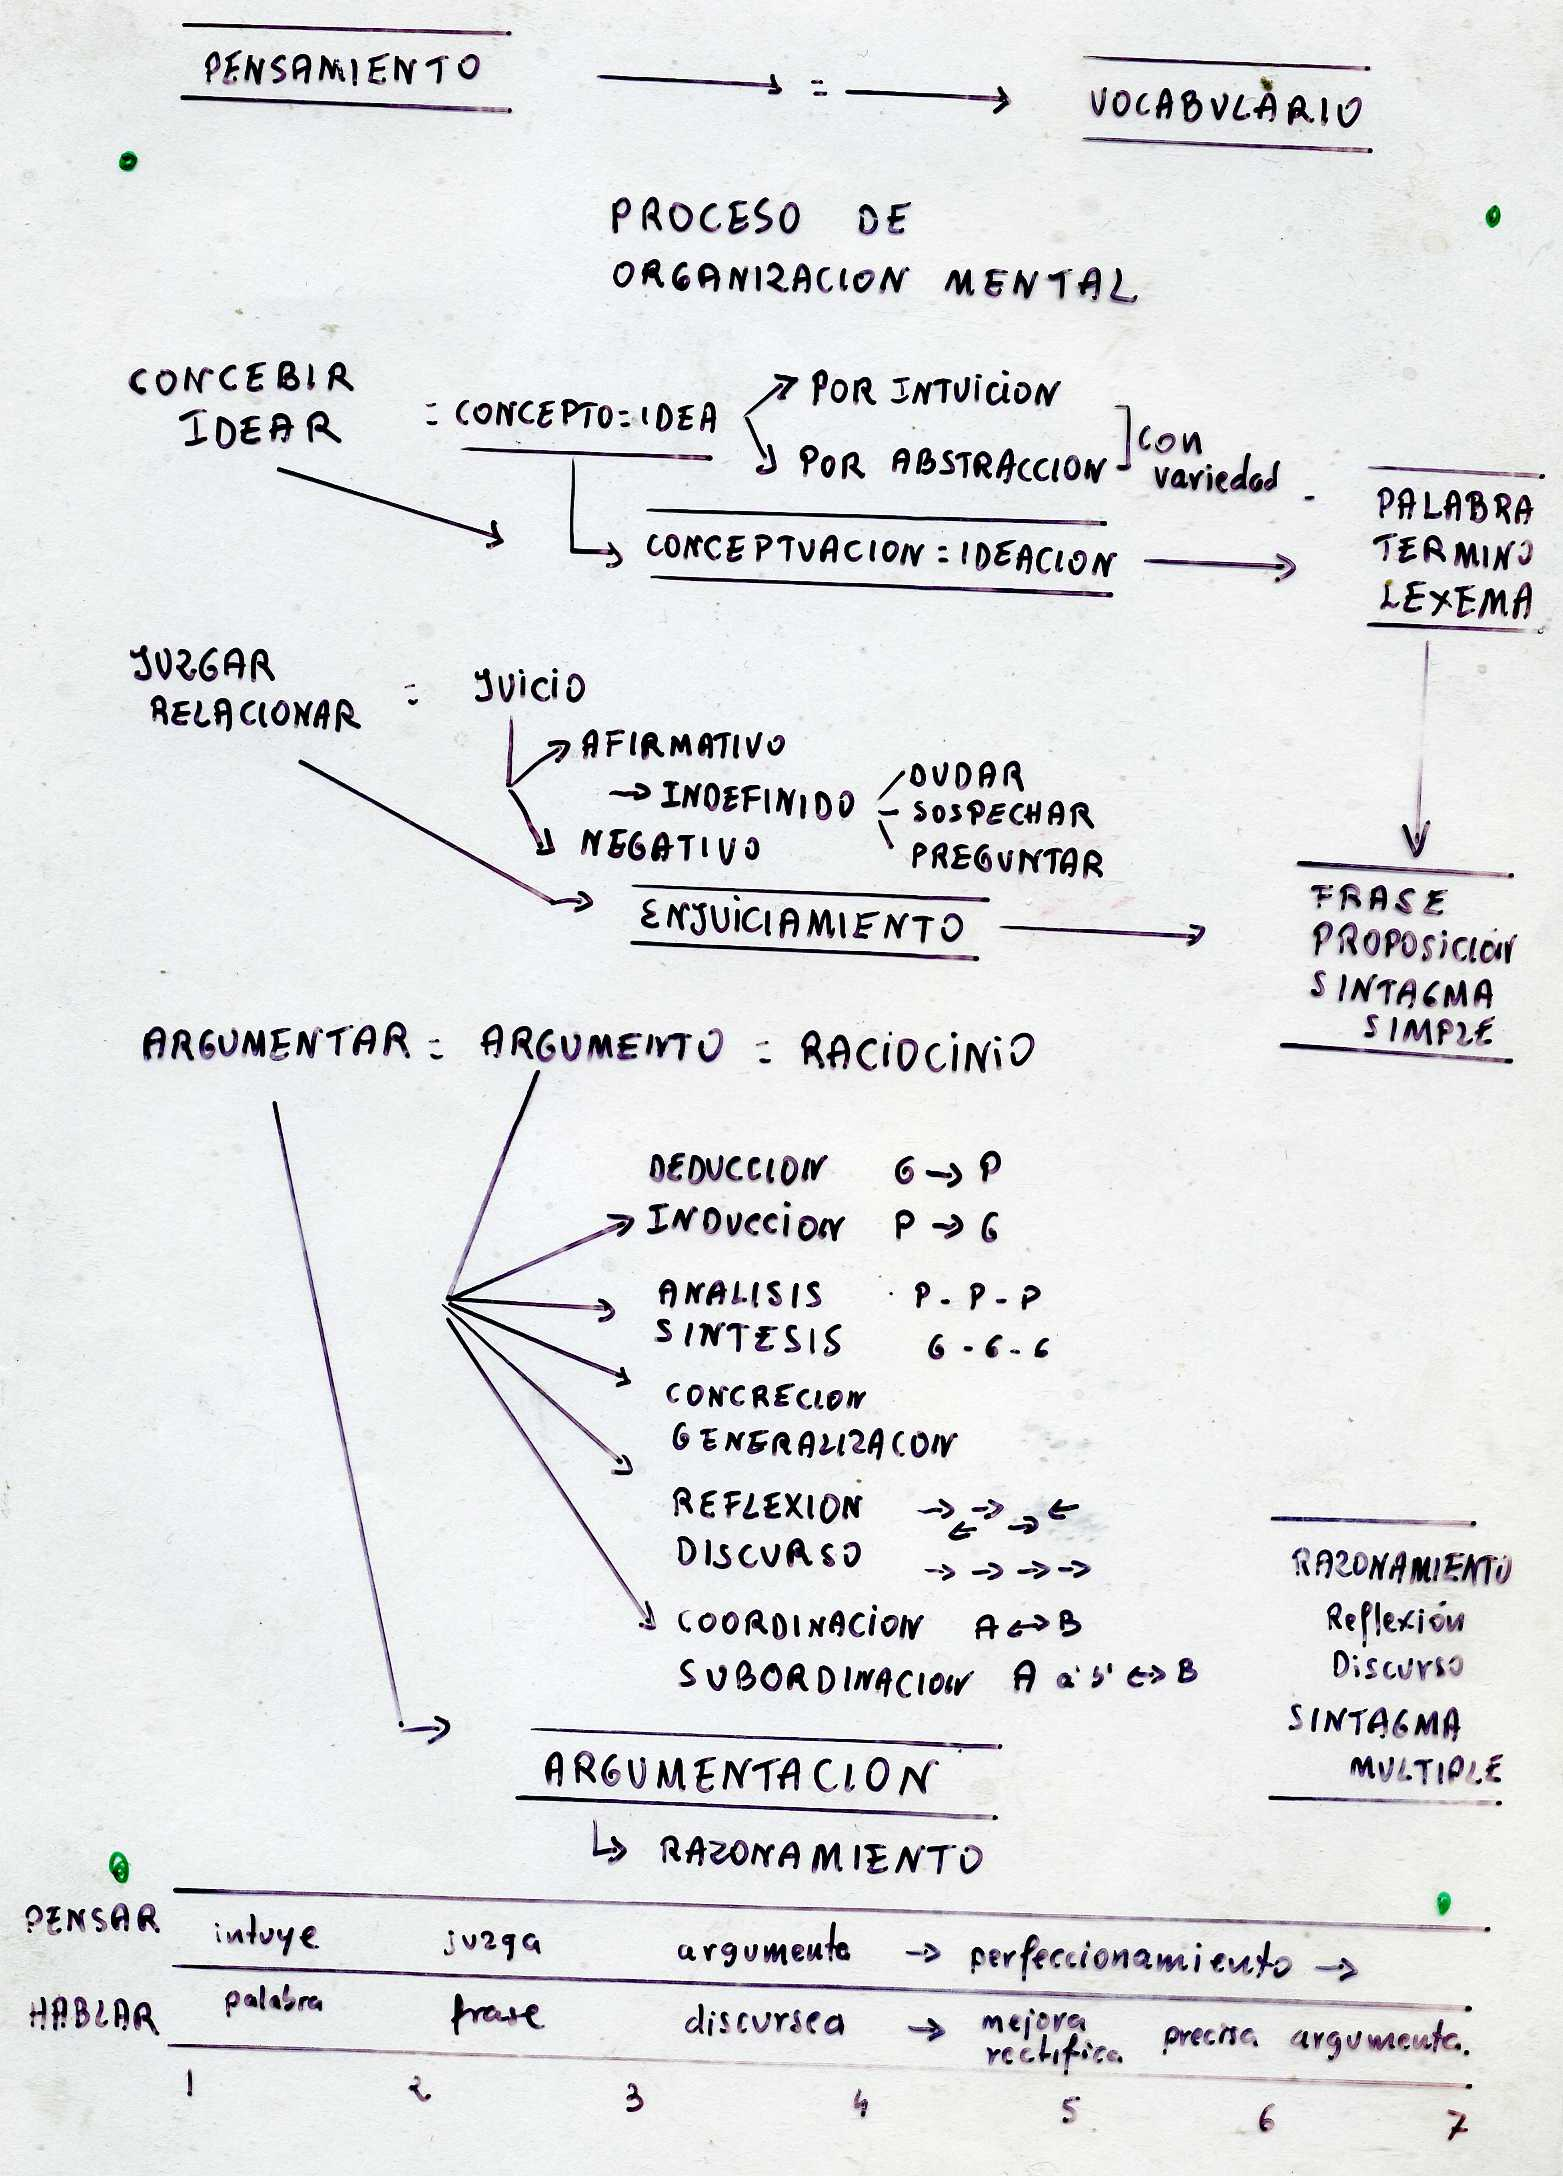 PENSAMIENTO → = → VOCABULARIO
PROCESO DE
ORGANIZACION MENTAL
CONCEBIR
IDEAR
= CONCEPTO = IDEA
POR INTUICION
POR ABSTRACCION
con
variedad
CONCEPTUACION = IDEACION →
PALABRA
TERMINO
LEXEMA
JUZGAR
RELACIONAR
= JUICIO
AFIRMATIVO
→ INDEFINIDO
NEGATIVO
DUDAR
SOSPECHAR
PREGUNTAR
ENJUICIAMIENTO →
FRASE
PROPOSICIÓN
SINTAGMA
SIMPLE
ARGUMENTAR = ARGUMENTO = RACIOCINIO
DEDUCCION G → P
INDUCCION P → G
ANALISIS P - P - P
SINTESIS G - G - G
CONCRECION
GENERALIZACON
REFLEXION → → ←
← →
DISCURSO → → → →
COORDINACION A ↔ B
SUBORDINACION A a' b' ↔ B
RAZONAMIENTO
Reflexión
Discurso
SINTAGMA
MULTIPLE
ARGUMENTACION
↳ RAZONAMIENTO
PENSAR intuye juzga argumenta → perfeccionamiento →
HABLAR palabra frase discursea → mejora rectifica precisa argumenta.
1 2 3 4 5 6 7